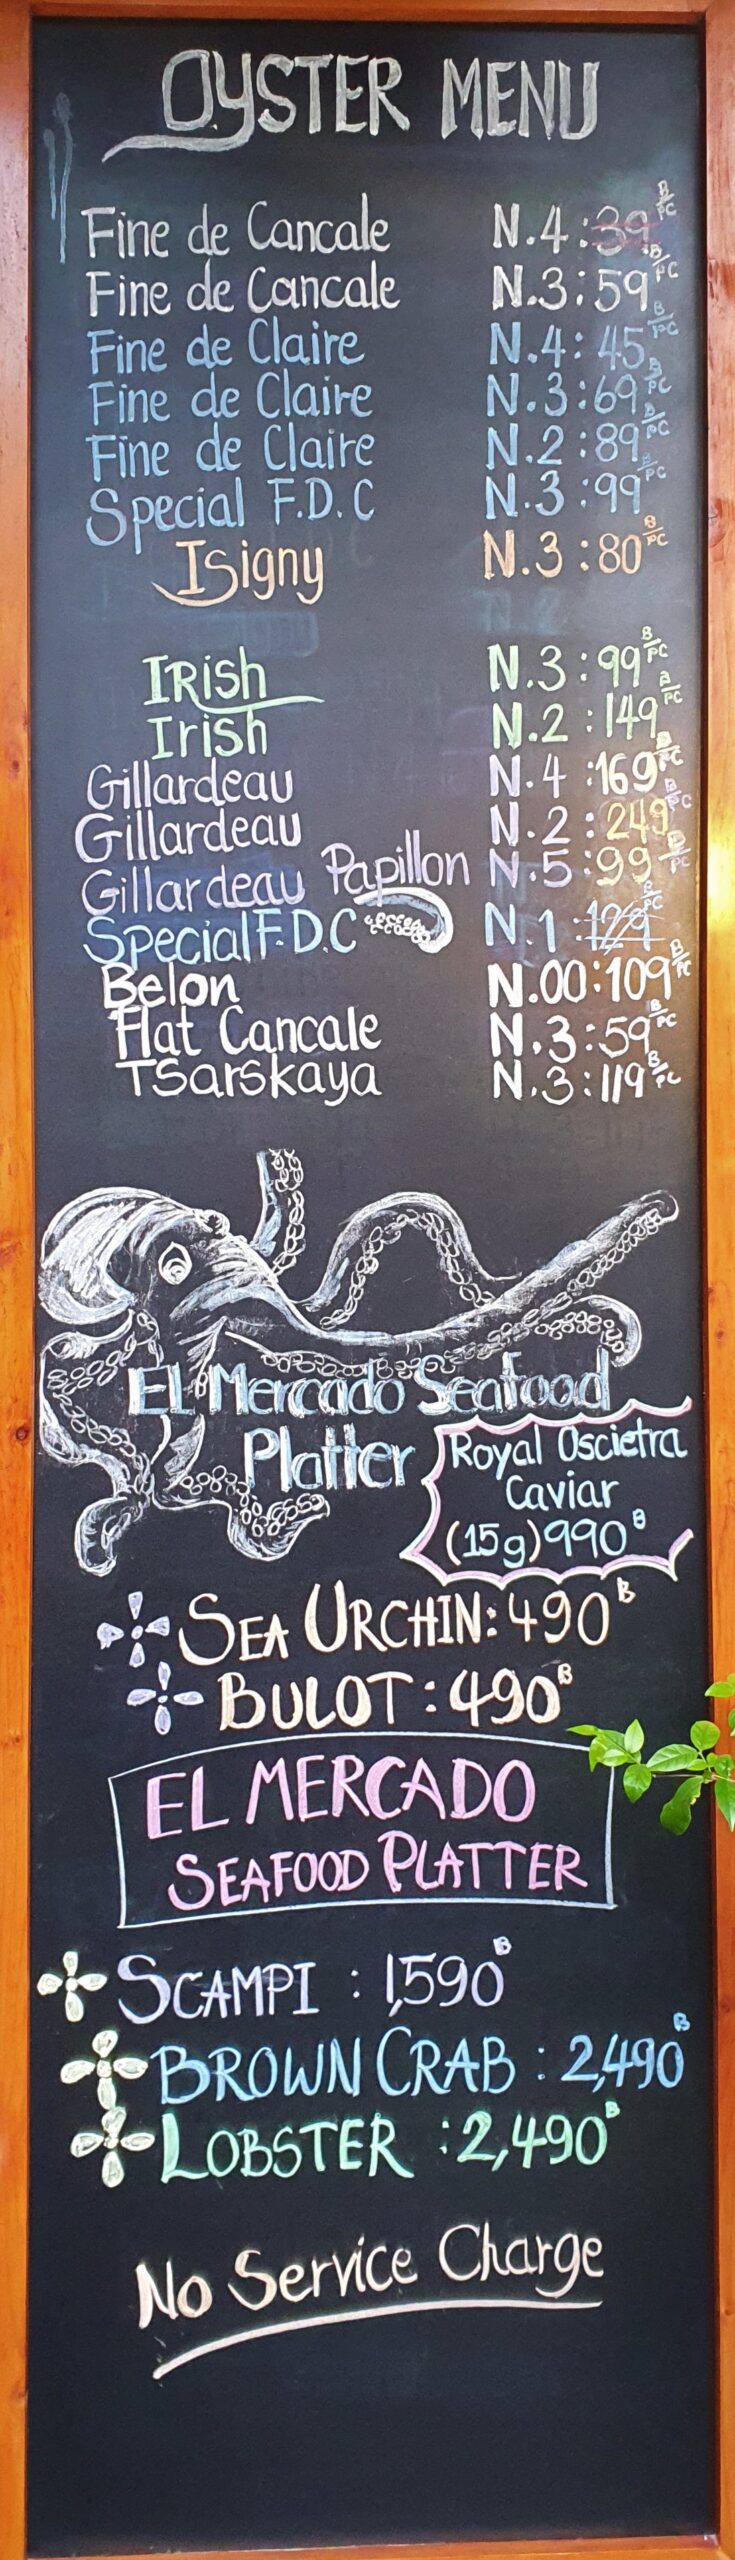 OYSTER MENU
Fine de Cancale N.4 : 39 B/PC
Fine de Cancale N.3 : 59 B/PC
Fine de Claire N.4 : 45 B/PC
Fine de Claire N.3 : 69 B/PC
Fine de Claire N.2 : 89 B/PC
Special F.D.C N.3 : 99 B/PC
Isigny N.3 : 80 B/PC
IRish N.3 : 99 B/PC
Irish N.2 : 149 B/PC
Gillardeau N.4 : 169 B/PC
Gillardeau N.2 : 249 B/PC
Gillardeau Papillon N.5 : 99 B/PC
Special F.D.C N.1 : 129 B/PC
Belon N.00 : 109 B/PC
Flat Cancale N.3 : 59 B/PC
TSarskaya N.3 : 119 B/PC
EL Mercado Seafood
Platter
Royal Oscietra
Caviar
(15g) 990 B
SEA URCHIN: 490 B
BULOT : 490 B
EL MERCADO
SEAFOOD PLATTER
SCAMPI : 1,590 B
BROWN CRAB : 2,490 B
LOBSTER : 2,490 B
No Service Charge